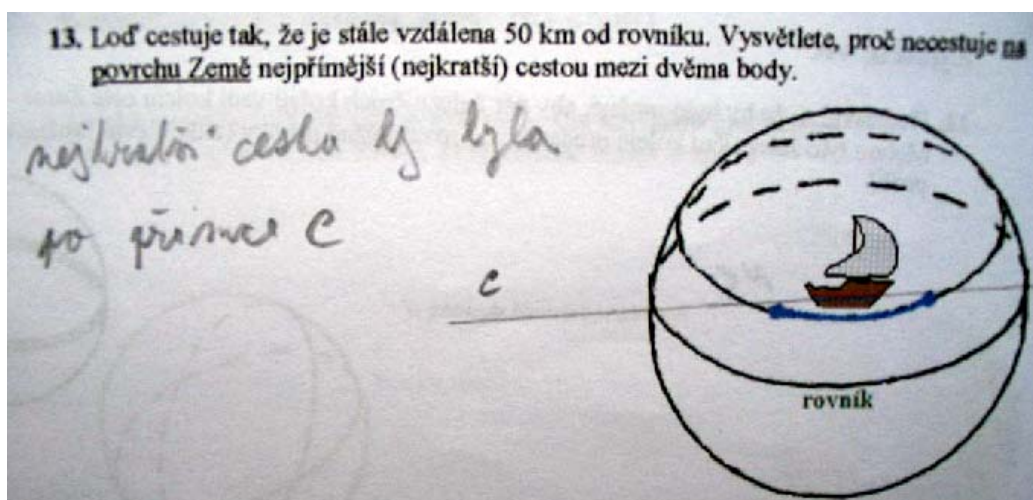 13. Loď cestuje tak, že je stále vzdálena 50 km od rovníku. Vysvětlete, proč necestuje na
povrchu Země nejpřímější (nejkratší) cestou mezi dvěma body.
nejkratší cesta by byla
po přímce C
c
rovník